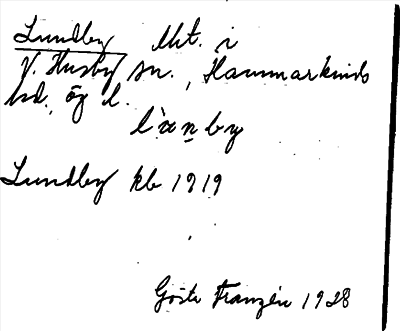 Lundby Uht. i
V. Husby sn., Hammarkinds
hd., Ög l.
l`a n̲ by
Lundby kb 1919
Gösta Franzén 1928